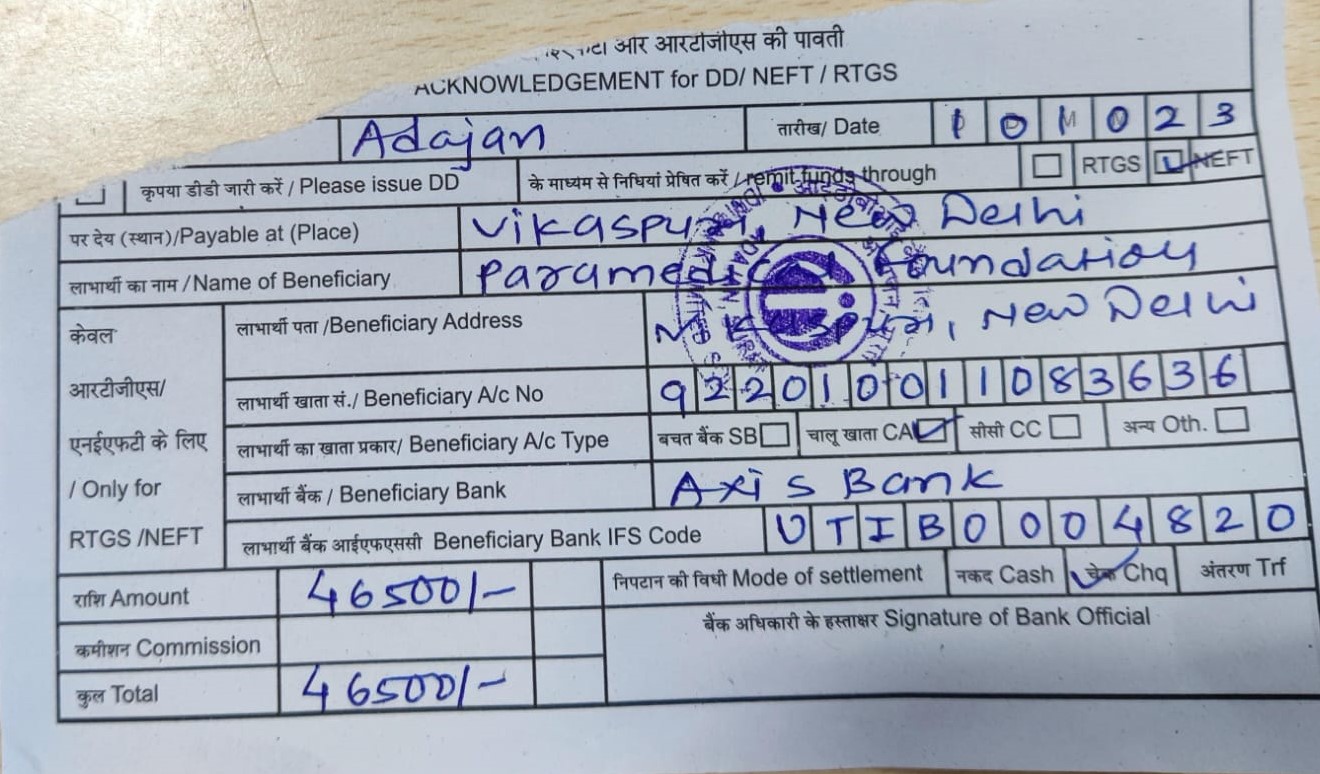 आर आरटीजीएस की पावती
ACKNOWLEDGEMENT for DD/ NEFT / RTGS
Adajan तारीख/ Date 1 0 1 0 2 3
कृपया डीडी जारी करें / Please issue DD के माध्यम से निधियां प्रेषित करें / remit funds through RTGS NEFT
पर देय (स्थान)/Payable at (Place) Vikaspuri, New Delhi
लाभार्थी का नाम /Name of Beneficiary Paramedical Foundation
केवल लाभार्थी पता /Beneficiary Address Vikaspuri, New Delhi
आरटीजीएस/ लाभार्थी खाता सं./ Beneficiary A/c No 922010011083636
एनईएफटी के लिए लाभार्थी का खाता प्रकार/ Beneficiary A/c Type बचत बैंक SB चालू खाता CA सीसी CC अन्य Oth.
/ Only for लाभार्थी बैंक / Beneficiary Bank Axis Bank
RTGS /NEFT लाभार्थी बैंक आईएफएससी Beneficiary Bank IFS Code UTIB0004820
राशि Amount 46500/- निपटान की विधी Mode of settlement नकद Cash चेक Chq अंतरण Trf
कमीशन Commission बैंक अधिकारी के हस्ताक्षर Signature of Bank Official
कुल Total 46500/-